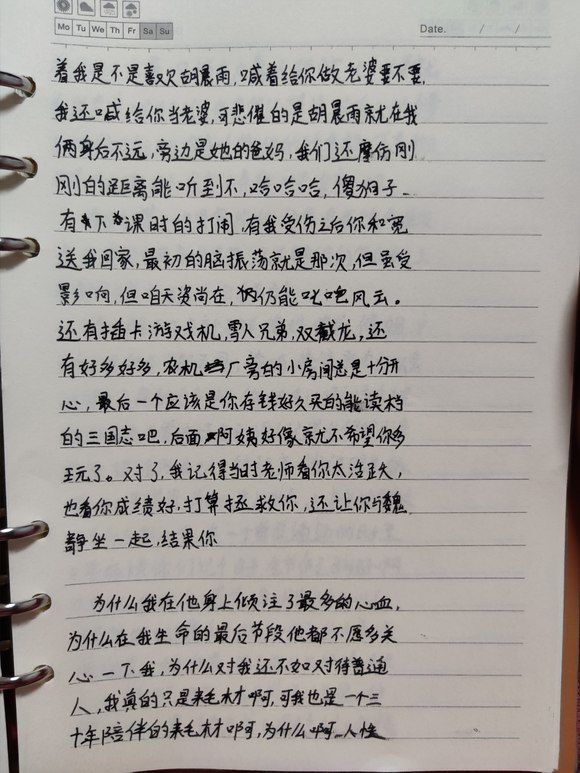 Mo Tu We Th Fr Sa Su
Date. / /
着我是不是喜欢胡晨雨,喊着给你做老婆要不要,
我还喊给你当老婆,可悲催的是胡晨雨就在我
俩身后不远,旁边是她的爸妈,我们还摩仿刚
刚的距离能听到不,哈哈哈,傻狍子_
有下课时的打闹,有我受伤之后你和宽
送我回家,最初的脑振荡就是那次,但虽受
影响,但咱天姿尚在,仍能叱咤风云。
还有插卡游戏机,雪人兄弟,双截龙,还
有好多好多,农机厂旁的小房间总是十分开
心,最后一个应该是你存钱好久买的能读档
的三国志吧,后面阿姨好像就不希望你多
玩了。对了,我记得当时老师看你太活跃,
也看你成绩好,打算拯救你,还让你与魏
静坐一起,结果你
为什么我在他身上倾注了最多的心血,
为什么在我生命的最后节段他都不愿多关
心一下我,为什么对我还不如对待普通
人,我真的只是耗材啊,可我也是一个三
十年陪伴的耗材啊,为什么啊_人性